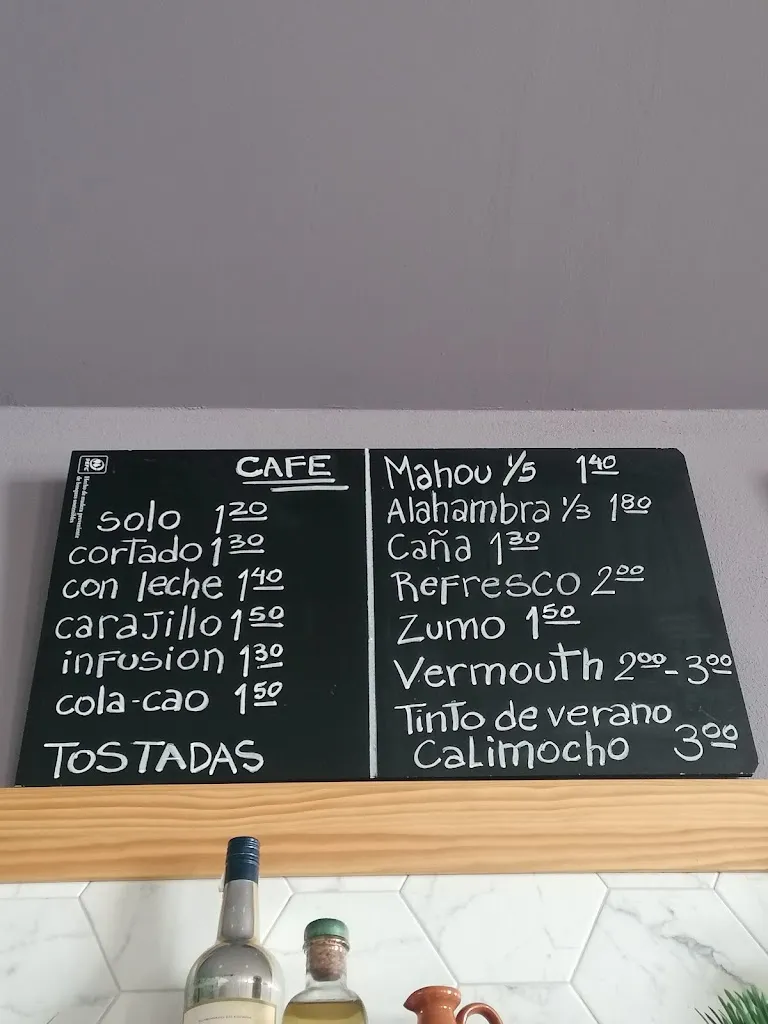 CAFE
solo 1.20
cortado 1.30
con leche 1.40
carajillo 1.50
infusion 1.30
cola-cao 1.50
TOSTADAS
Mahou 1/5 1.40
Alahambra 1/3 1.80
Caña 1.30
Refresco 2.00
Zumo 1.50
Vermouth 2.00-3.00
Tinto de verano
Calimocho 3.00